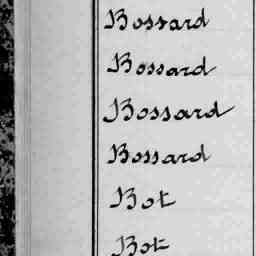 Bossard
Bossard
Bossard
Bossard
Bot
Bot